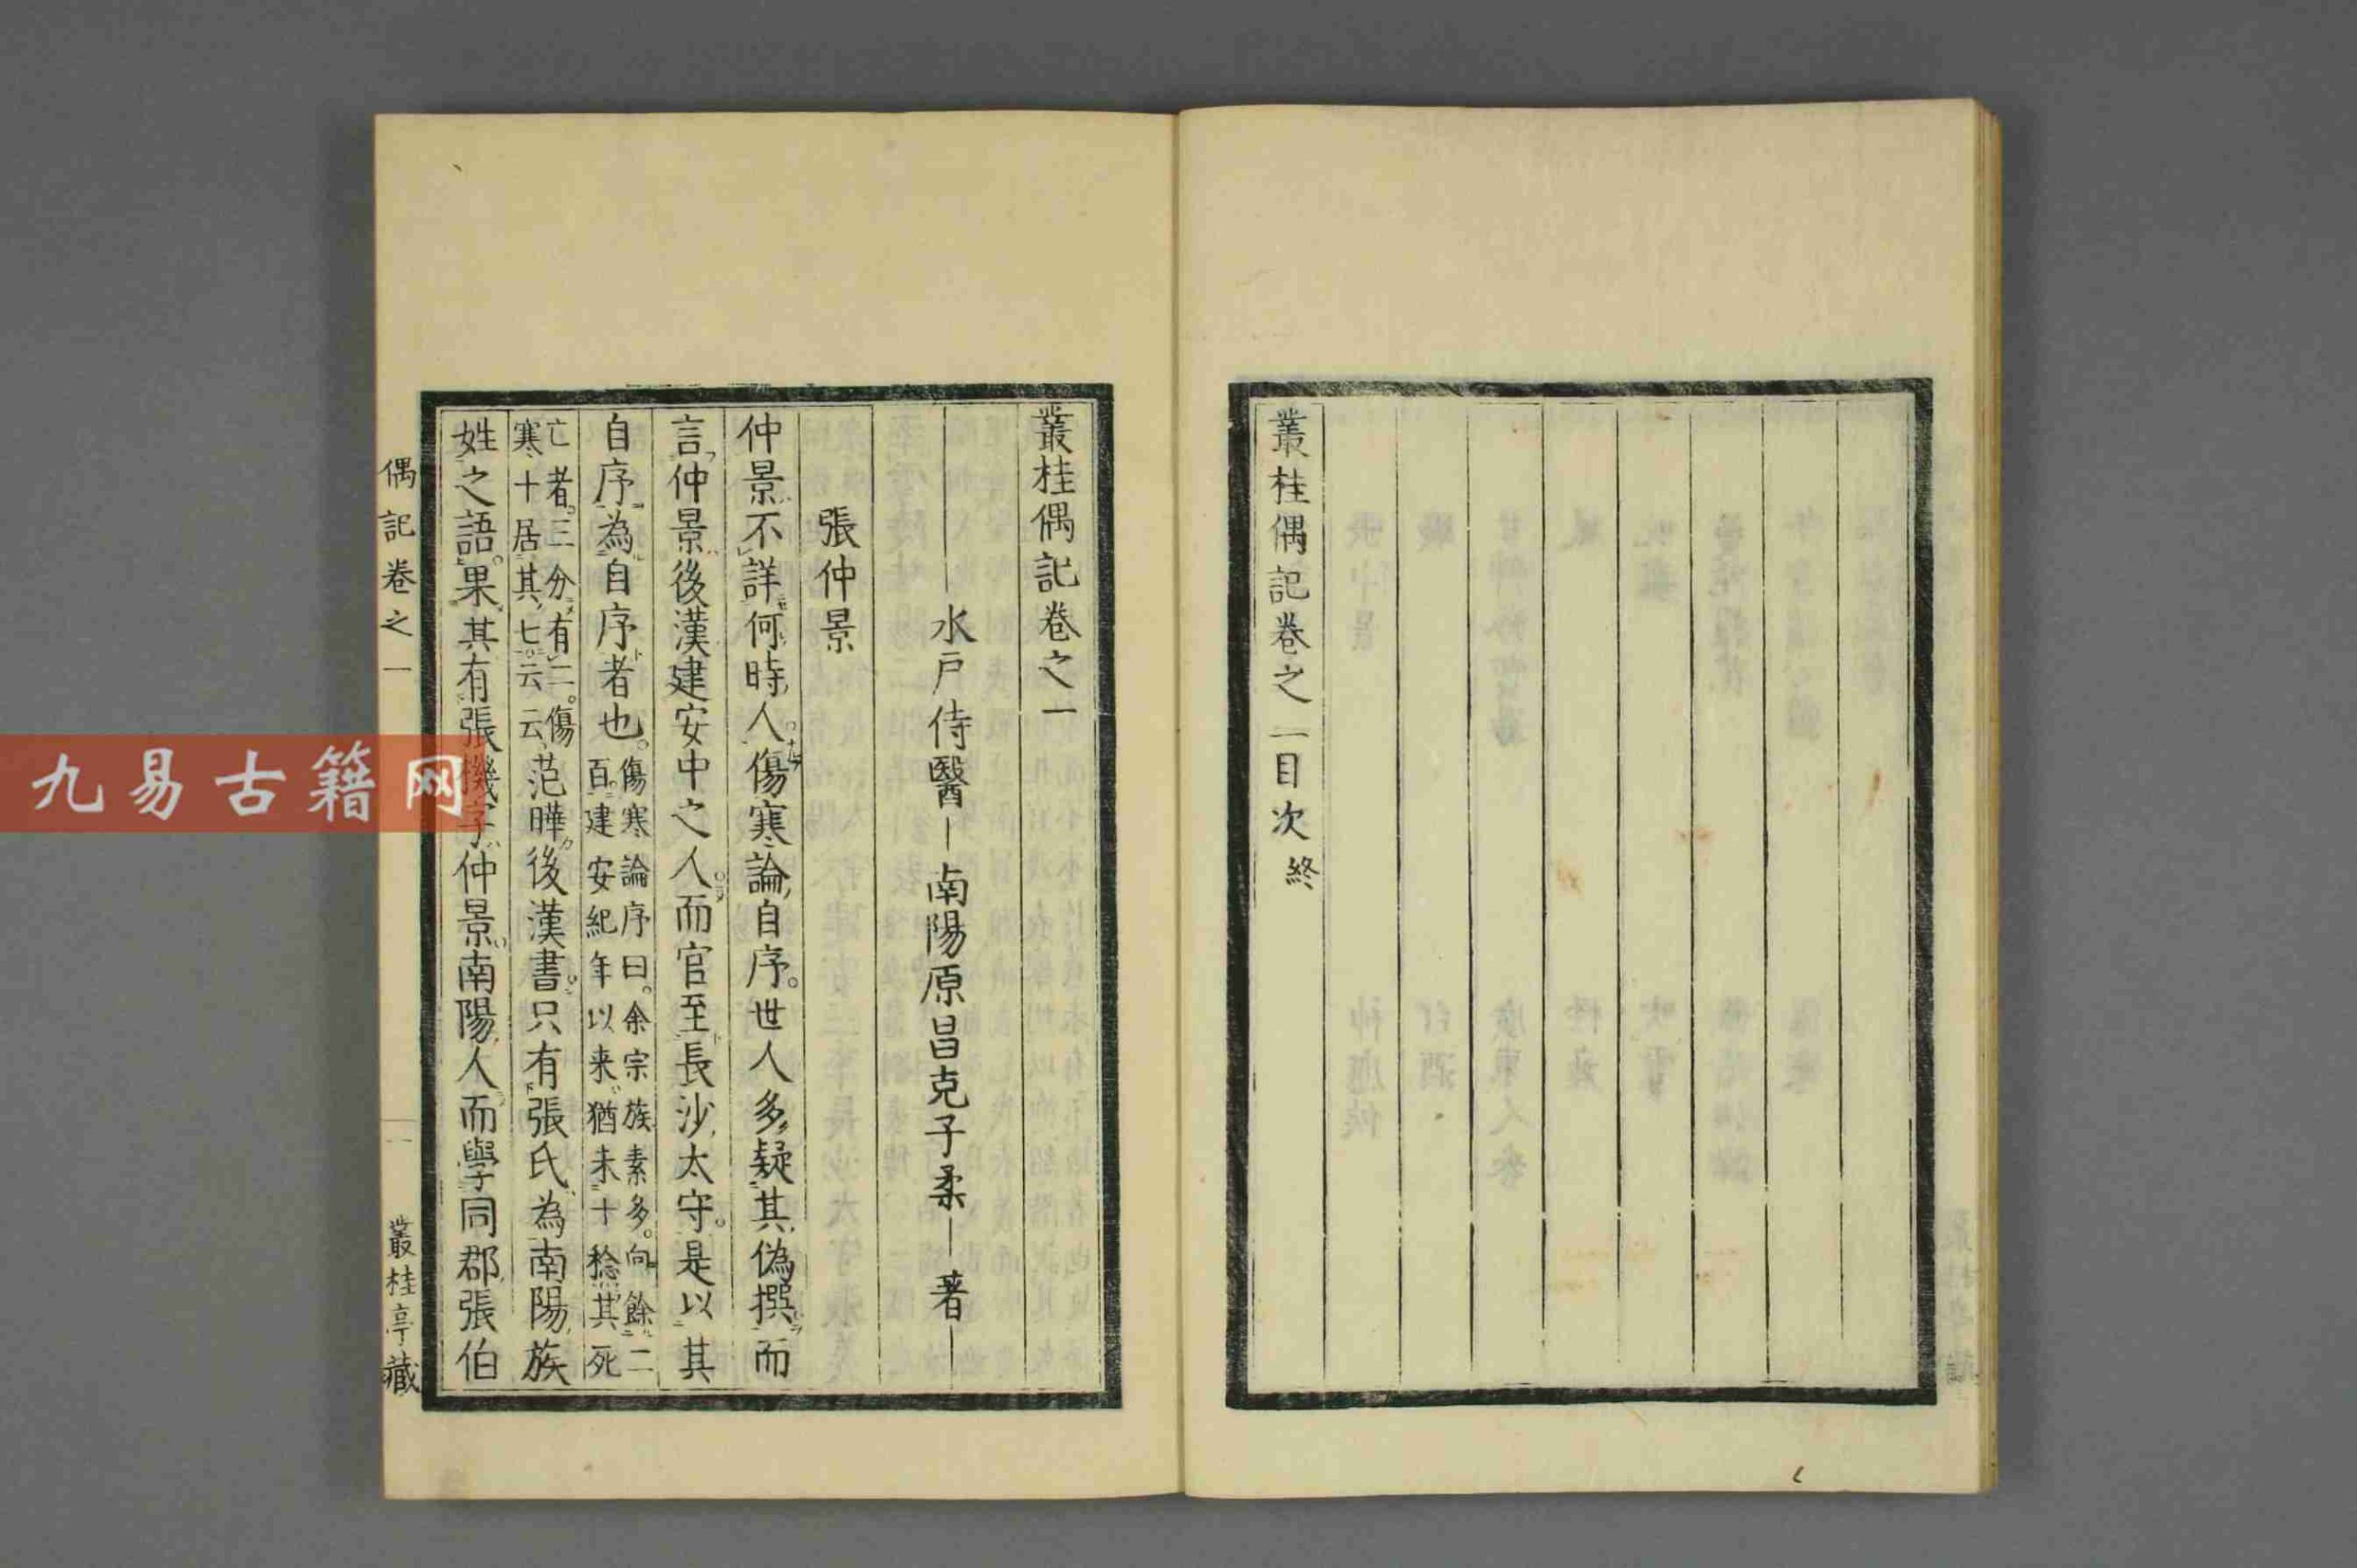 叢桂偶記卷之一目次終
叢桂偶記卷之一
水戶侍醫 南陽原昌克子柔 著
張仲景
仲景不詳何時人傷寒論自序。世人多疑其偽撰而
言仲景後漢建安中之人而官至長沙太守。是以其
自序為自序者也。傷寒論序曰。余宗族素多。向餘二
百建安紀年以来猶未十稔其死
亡者。三分有二。傷
寒十居其七云云范曄後漢書只有張氏為南陽族
姓之語。果其有張機字仲景南陽人而學同郡張伯
偶記卷之一
一
叢桂亭藏
九易古籍网